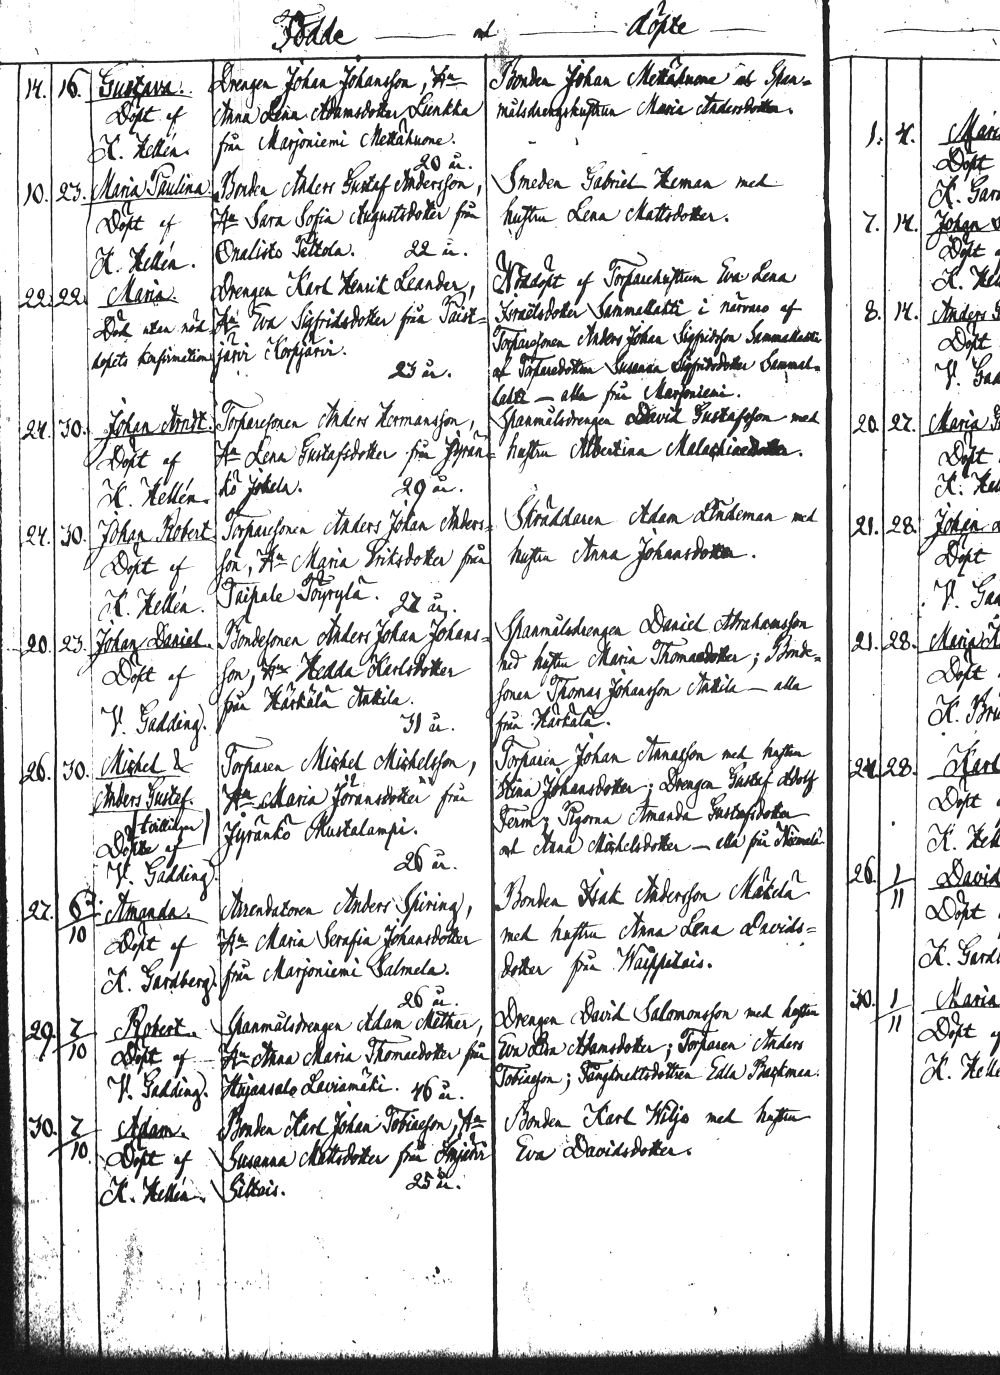 Födde — och — döpte
14. 16. Gustava. Drengen Johan Johansson, H:n Bonden Johan Mettähuone och Span=
Döpt af Anna Lena Adamsdotter Lunkka målsdrengshustrun Maria Andersdotter.
K. Hellén. från Marjoniemi Mettähuone.
20 år.
10. 23. Maria Paulina Bonden Anders Gustaf Andersson, Smeden Gabriel Heman med
Döpt af H:n Sara Sofia Augustsdotter från hustru Lena Mattsdotter.
K. Hellén. Onalisto Tettola. 22 år.
22. 22. Maria. Drengen Karl Henrik Leander, Nöddöpt af Torparehustrun Eva Lena
Död utan nöd H:n Eva Sigfridsdotter från Taist= Israelsdotter Sammallahti i närvaro af
dopets konfirmation järvi Korpjärvi. Torparesonen Anders Johan Sigfridsson Sammallahti
23 år. och Torparedottren Susanna Sigfridsdotter Sammal=
lahti — alla från Marjoniemi.
24. 30. Johan Arndt. Torparesonen Anders Hermansson, Spanmålsdrengen David Gustafsson med
Döpt af H:n Lena Gustafsdotter från Jyrän= hustru Albertina Malachiasdotter.
K. Hellén. kö Jokela. 29 år.
24. 30. Johan Robert Torparesonen Anders Johan Anders= Skräddaren Adam Lindeman med
Döpt af son, H:n Maria Eriksdotter från hustru Anna Johansdotter.
K. Hellén. Taipale Töyrylä. 27 år.
20. 23. Johan Daniel. Bondesonen Anders Johan Johans= Spanmålsdrengen Daniel Abrahamsson
Döpt af son, H:n Hedda Karlsdotter med hustru Maria Thomaedotter; Bonde=
V. Gadding. från Härkälä Anttila. sonen Thomas Johansson Anttila — alla
31 år. från Härkälä.
26. 30. Michel & Torparen Michel Michelsson, Torparen Johan Annasson med hustru
Anders Gustaf. H:n Maria Jöransdotter från Stina Johansdotter; Drengen Gustaf Adolf
(tvillingar) Jyränkö Mustalampi. Ferm; Pigorna Amanda Gustafsdotter
Döpte af och Anna Michelsdotter — alla från
V. Gadding. 26 år.
27. 6/10 Amanda. Arrendatoren Anders Spiring, Bonden Isak Andersson Mäkelä
Döpt af H:n Maria Serafia Johansdotter med hustru Anna Lena Davids=
K. Gardberg. från Marjoniemi Salmela. dotter från Waippilais.
26 år.
29. 7/10 Robert. Spanmålsdrengen Adam Mether, Drengen David Salomonsson med hustru
Döpt af H:n Anna Maria Thomaedotter från Eva Lisa Adamsdotter; Torparen Anders
V. Gadding. Hujansalo Laviamäki. 46 år. Tobiasson; Fångknektsdottren Edla Backman.
30. 7/10. Adam. Bonden Karl Johan Tobiasson, H:n Bonden Karl Wiljo med hustru
Döpt af Susanna Mattsdotter från Imjärvi Eva Davidsdotter.
K. Hellén. Siltais. 25 år.
1. 4. Maria
Döpt
K. Gard
7. 14. Johan
Döpt a
K. Hell
8. 14. Anders
Döpt
V. Gad
20. 27. Maria
Döpt
K. Hell
21. 28. Johan
Döpt
V. Gad
21. 28. Maria
Döpt
K.
24. 28. Karl
Döpt
K. Hell
26. 1/11 David
Döpt
K. Gardb
30. 1/11 Maria
Döpt af
K. Helle